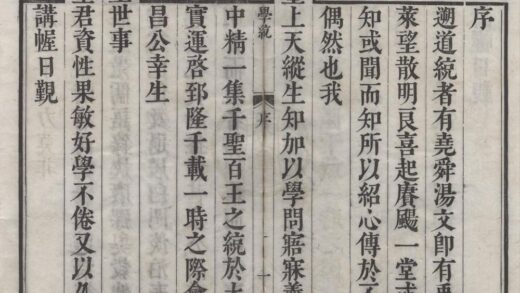 序
遡道統者有堯舜湯文卽有禹
萊望散明良喜起賡颺一堂或
知或聞而知所以紹心傳於
偶然也我
學 序 一
上天縱生知加以學問寤寐義
中精一集千聖百王之統於
寶運啓郅隆千載一時之際會
昌公幸生
世事
君資性果敏好學不倦又以
講幄日覲